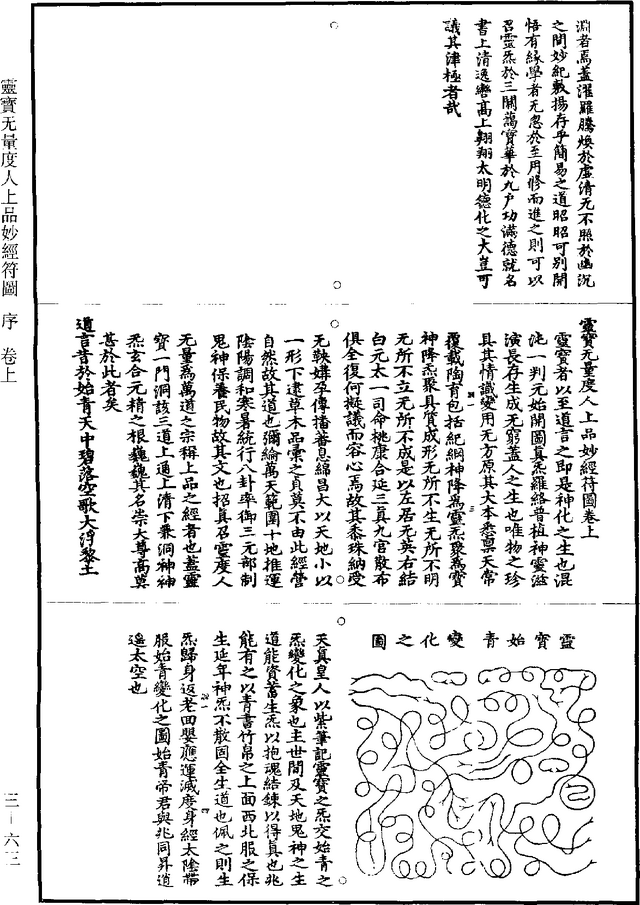 淵者焉蓋濯羅騰煥於虛清无不照於幽沉
之間妙紀敷揚存乎簡易之道昭昭可別開
悟有緣學者无忽於至用修而進之則可以
召靈炁於三關藹寶華於九戶功滿德就名
書上清逸轡高上翱翔太明德化之大豈可
議其津極者哉
靈寶无量度人上品妙經符圖卷上
靈寶者以至道言之即是神化之生也混
沌一判元始開圖真炁羅絡普植神靈滋
演長存生成无窮蓋人之生也唯物之珍
具其情識變用无方原其大本悉禀天常
覆載陶育包括紀綱神降為靈炁聚為寶
神降炁聚具質成形无所不生无所不明
无所不立无所不成是以左居无英右結
白元太一司命桃康合延三真九宮散布
俱全復何擬議而容心焉故其黍珠納受
无鞅媾孕傳播蕃息綿昌大以天地小以
一形下逮草木品彙之貞莫不由此經營
自然故其道也彌綸萬天範圍十地推運
陰陽調和寒暑統行八卦率御三元部制
鬼神保養民物故其文也招真召靈度人
无量為萬道之宗稱上品之經者也蓋靈
寶一門洞該三道上通上清下兼洞神神
炁玄合元精之根巍巍其名崇大尊高莫
甚於此者矣
道言昔於始青天中碧落空歌大浮黎土
靈寶始青變化之圖
天真皇人以紫筆記靈寶之炁交始青之
炁變化之象也主世間及天地鬼神之生
道能資蓄生炁以抱魂結鍊以得真也兆
能有之以青書竹帛之上面西北服之保
生延年神炁不散固全生道也佩之則生
炁歸身返老回嬰應運滅度身經太陰帶
服始青變化之圖始青帝君與兆同昇道
遙太空也
靈寶无量度人上品妙經符圖 序 卷上
三—六三